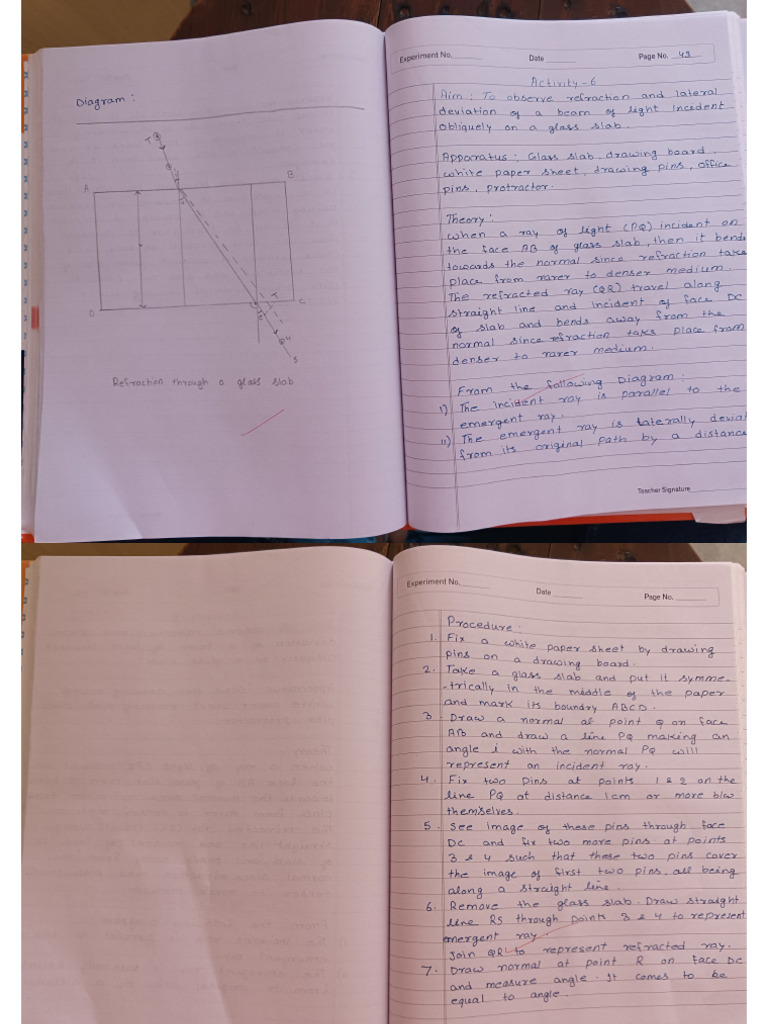 Diagram :
A
B
D
C
S
Refraction through a glass slab
Experiment No.
Date
Page No. 43
Activity-6
Aim : To observe refraction and lateral
deviation of a beam of light incident
obliquely on a glass slab.
Apparatus : Glass slab, drawing board,
white paper sheet, drawing pins, office
pins, protractor.
Theory :
When a ray of light (PQ) incident on
the face AB of glass slab, then it bends
towards the normal since refraction takes
place from rarer to denser medium.
The refracted ray (QR) travel along
straight line and incident of face DC
of slab and bends away from the
normal since refraction takes place from
denser to rarer medium.
From the following Diagram :
i) The incident ray is parallel to the
emergent ray.
ii) The emergent ray is laterally devia
from its original path by a distance
Teacher Signature
Experiment No.
Date
Page No.
Procedure :
1. Fix a white paper sheet by drawing
pins on a drawing board.
2. Take a glass slab and put it symme-
-trically in the middle of the paper
and mark its boundry ABCD.
3. Draw a normal at point Q on face
AB and draw a line PQ making an
angle i with the normal PQ will
represent an incident ray.
4. Fix two pins at points 1 & 2 on the
line PQ at distance 1cm or more b/w
themselves.
5. See image of these pins through face
DC and fix two more pins at points
3 & 4 such that these two pins cover
the image of first two pins, all being
along a straight line.
6. Remove the glass slab. Draw straight
line RS through points 3 & 4 to represent
emergent ray.
Join QR to represent refracted ray.
7. Draw normal at point R on face DC
and measure angle. It comes to be
equal to angle.